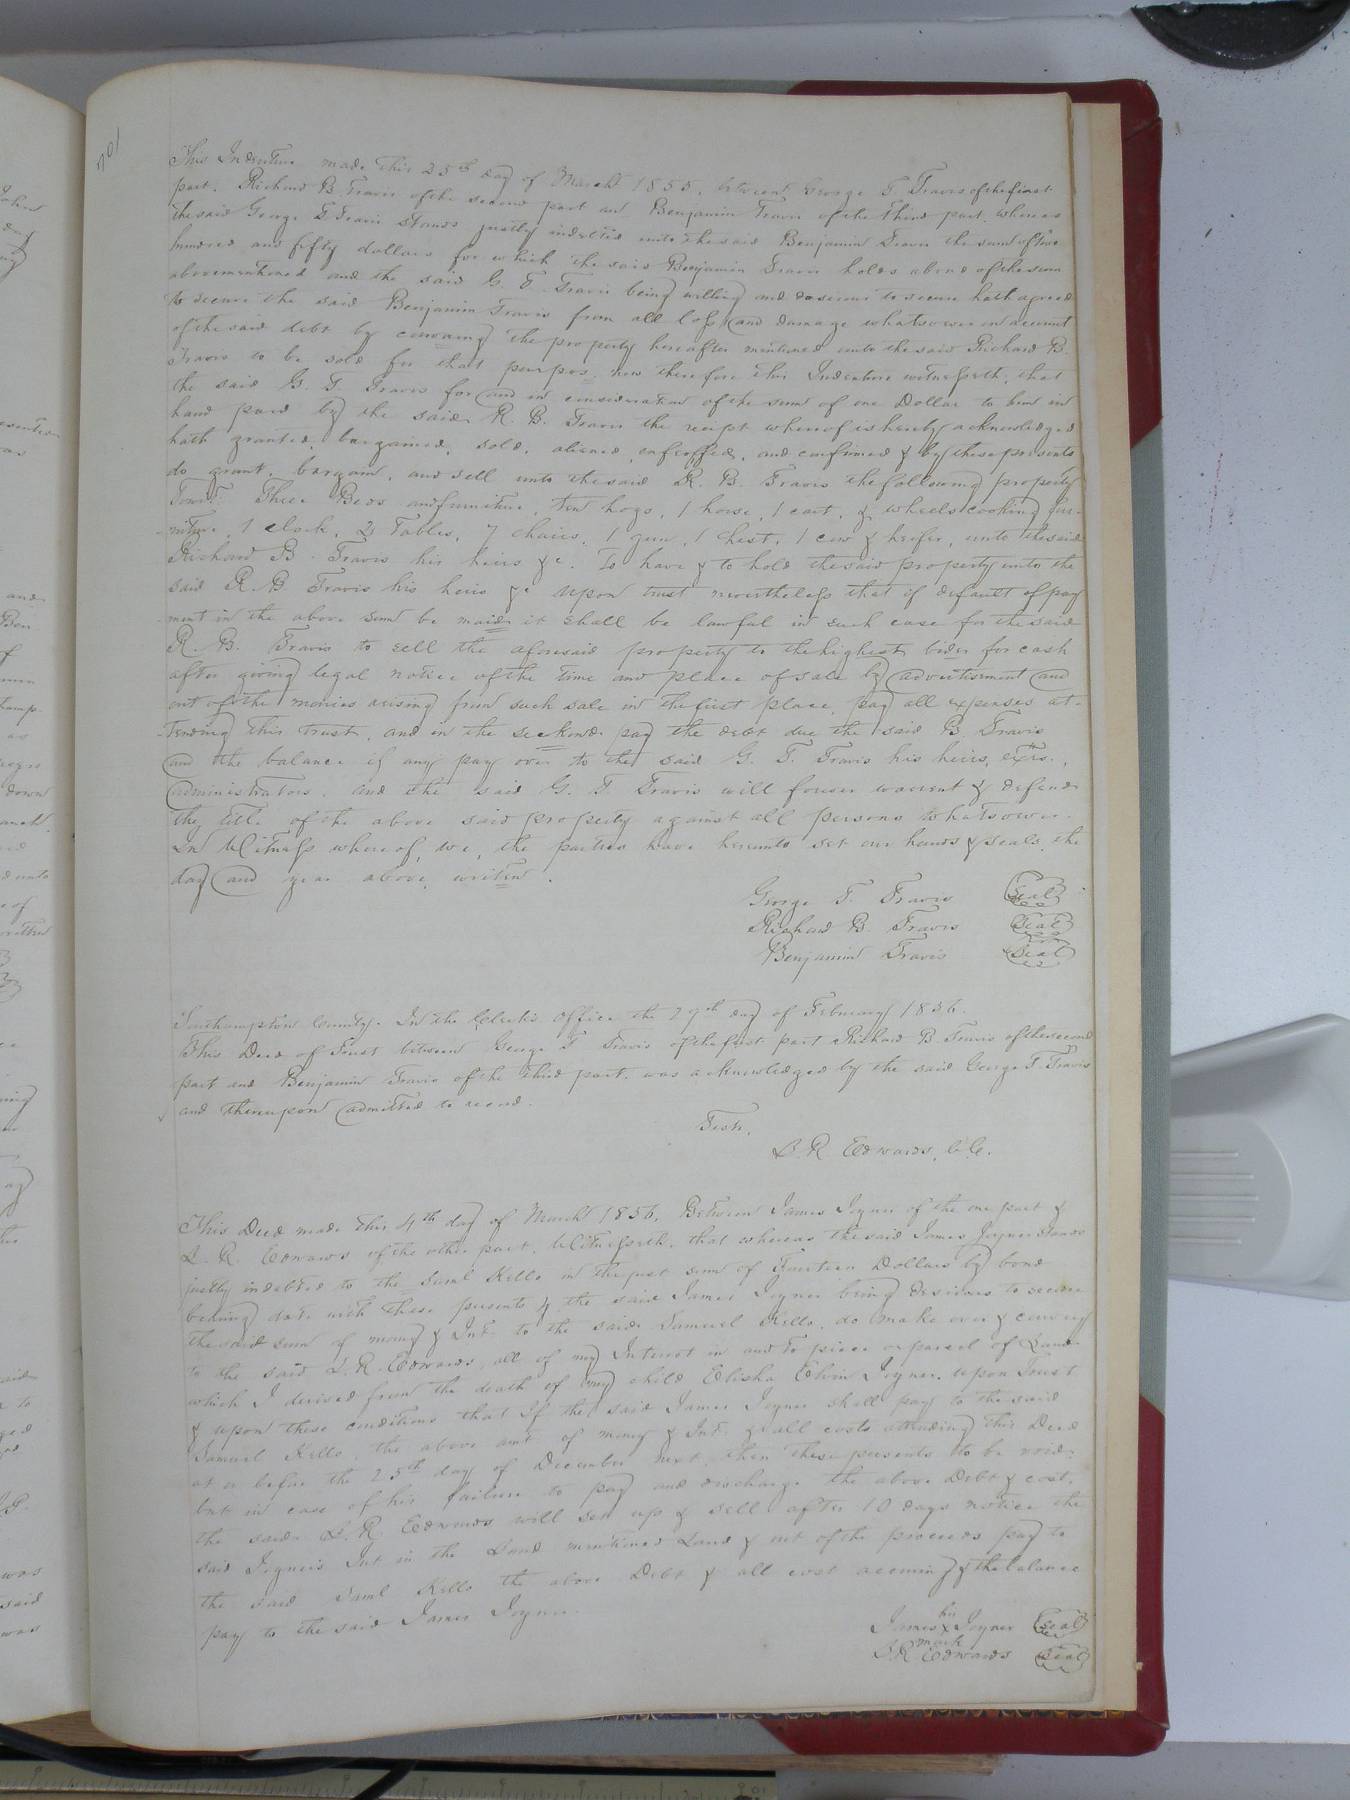 701
This Indenture made this 25th day of March 1855, between George T Travis of the first
part, Richard B Travis of the second part and Benjamin Travis of the third part, whereas
the said George T Travis stands justly indebted unto the said Benjamin Travis the sum of two
hundred and fifty dollars for which the said Benjamin Travis holds a bond of the sum
abovementioned and the said G. T. Travis being willing and desirous to secure hath agreed
to secure the said Benjamin Travis from all loss and damage whatsoever in account
of the said debt by conveying the property hereafter mentioned unto the said Richard B.
Travis to be sold for that purpos, now therefore this Indenture witnesseth, that
the said G. T. Travis for and in consideration of the sum of one Dollar to him in
hand paid by the said R. B. Travis the recipt whereof is hereby acknowledged
hath granted, bargained, sold, aliened, enfeoffed, and confirmed & by these presents
do grant, bargain, and sell unto the said R. B. Travis the following property
Towit Three Beds and furniture, ten hogs, 1 horse, 1 cart, & wheels cooking fur-
niture, 1 clock, 2 Tables, 7 chairs, 1 gun, 1 chest, 1 cow & heifer, unto the said
Richard B. Travis his heirs &c. To have & to hold the said property unto the
said R. B Travis his heirs &c upon trust nevertheless that if default of pay
ment in the above sum be maid it shall be lawful in such case for the said
R. B. Travis to sell the aforesaid property to the highest bider for cash
after giving legal notice of the time and place of sale by advertisement and
out of the monies arising from such sale in the first place, pay all expenses at-
tending this trust, and in the seckond pay the debt due the said B. Travis
and the balance if any pay over to the said G. T. Travis his heirs, extrs.,
administrators. and the said G. T Travis will forever warrent & defend
the title of the above said property against all persons whatsoever.
In Witness whereof, we, the parties have hereunto set our hands & seals, the
day and year above writen.
George T. Travis Seal
Richard B. Travis Seal
Benjamin Travis Seal
Southampton County. In the Clerk's Office the 29th day of February 1856.
This Deed of Trust between George T Travis of the first part Richard B. Travis of the second
part and Benjamin Travis of the third part, was acknowledged by the said George T. Travis
and thereupon admitted to record.
Teste,
L. R Edwards, C.C.
This Deed made this 4th day of March 1856, Between James Joyner of the one part &
L. R. Edwards of the other part, Witnesseth, that whereas the said James Joyner stands
justly indebted to the Saml Kello in the just sum of Fourteen Dollars by bond
bearing date with these presents & the said James Joyner being desirous to secure
the said sum of money & Int. to the said Samuel Kello, do make over & convey
to the said L. R. Edwards, all of my Interest in and to piece or parcel of Land
which I derived from the death of my child Elisha Elvin Joyner. upon Trust
& upon these conditions that If the said James Joyner shall pay to the said
Samuel Kello, the above amt. of money & Int. & all costs attending this Deed
at or before the 25th day of December next, then these presents to be void:
but in case of his failure to pay and discharge the above Debt & cost,
the said L. R. Edwards will set up & sell after 10 days notice the
said Joyner's Int in the Land mentioned Land & out of the proceeds pay to
the said Saml Kello the above Debt & all cost accruing & the balance
pay to the said James Joyner.
his
James X Joyner Seal
mark
L R Edwards Seal